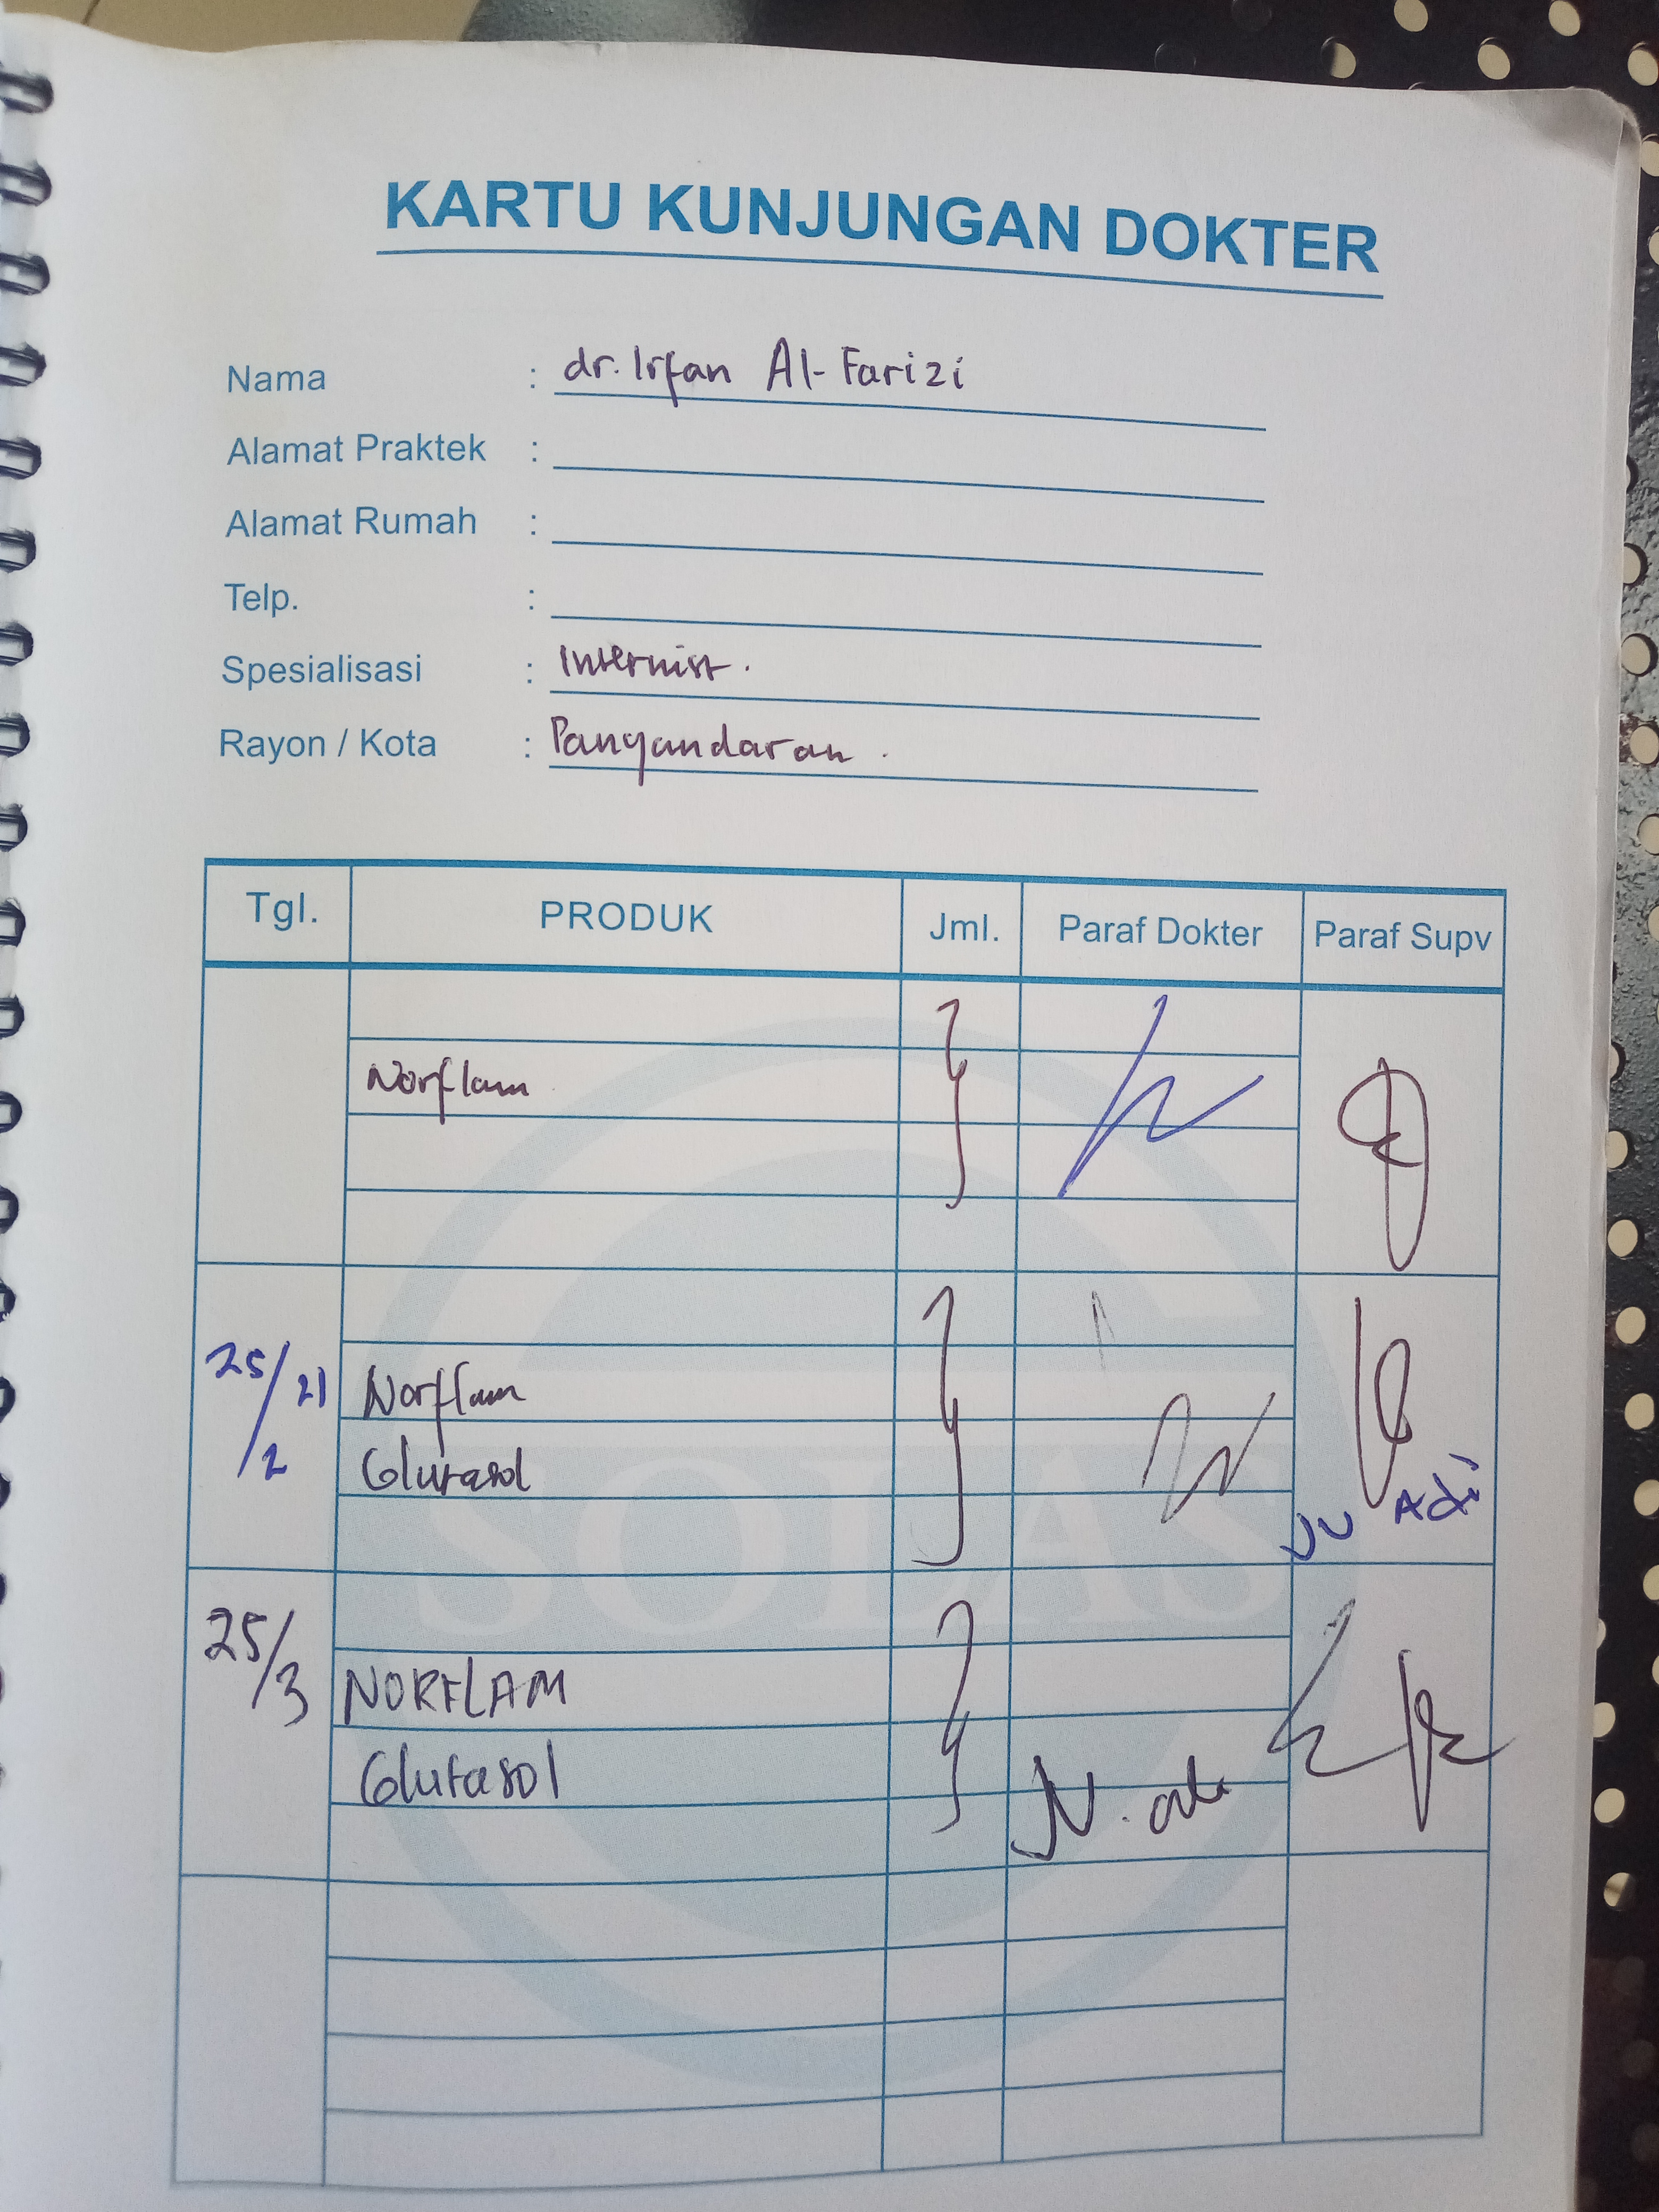 KARTU KUNJUNGAN DOKTER
Nama : dr. Irfan Al-Farizi
Alamat Praktek :
Alamat Rumah :
Telp. :
Spesialisasi : Internist.
Rayon / Kota : Pangandaran.
Tgl. PRODUK Jml. Paraf Dokter Paraf Supv
Norflam
25/2 21 Norflam
Glutasol
Adi
SOLAS
25/3 NORFLAM
Glutasol